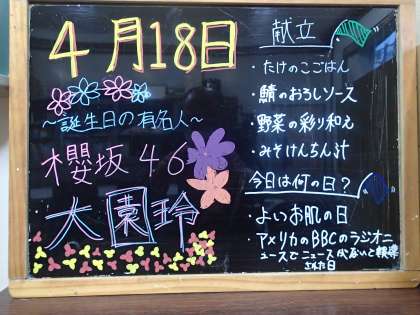 4月18日
~誕生日の有名人~
櫻坂46
大園玲
献立
・たけのこごはん
・鯖のおろしソース
・野菜の彩り和え
・みそけんちん汁
今日は何の日?
・よいお肌の日
・アメリカのBBCのラジオニ
ュースでニュースがないと報道
された日